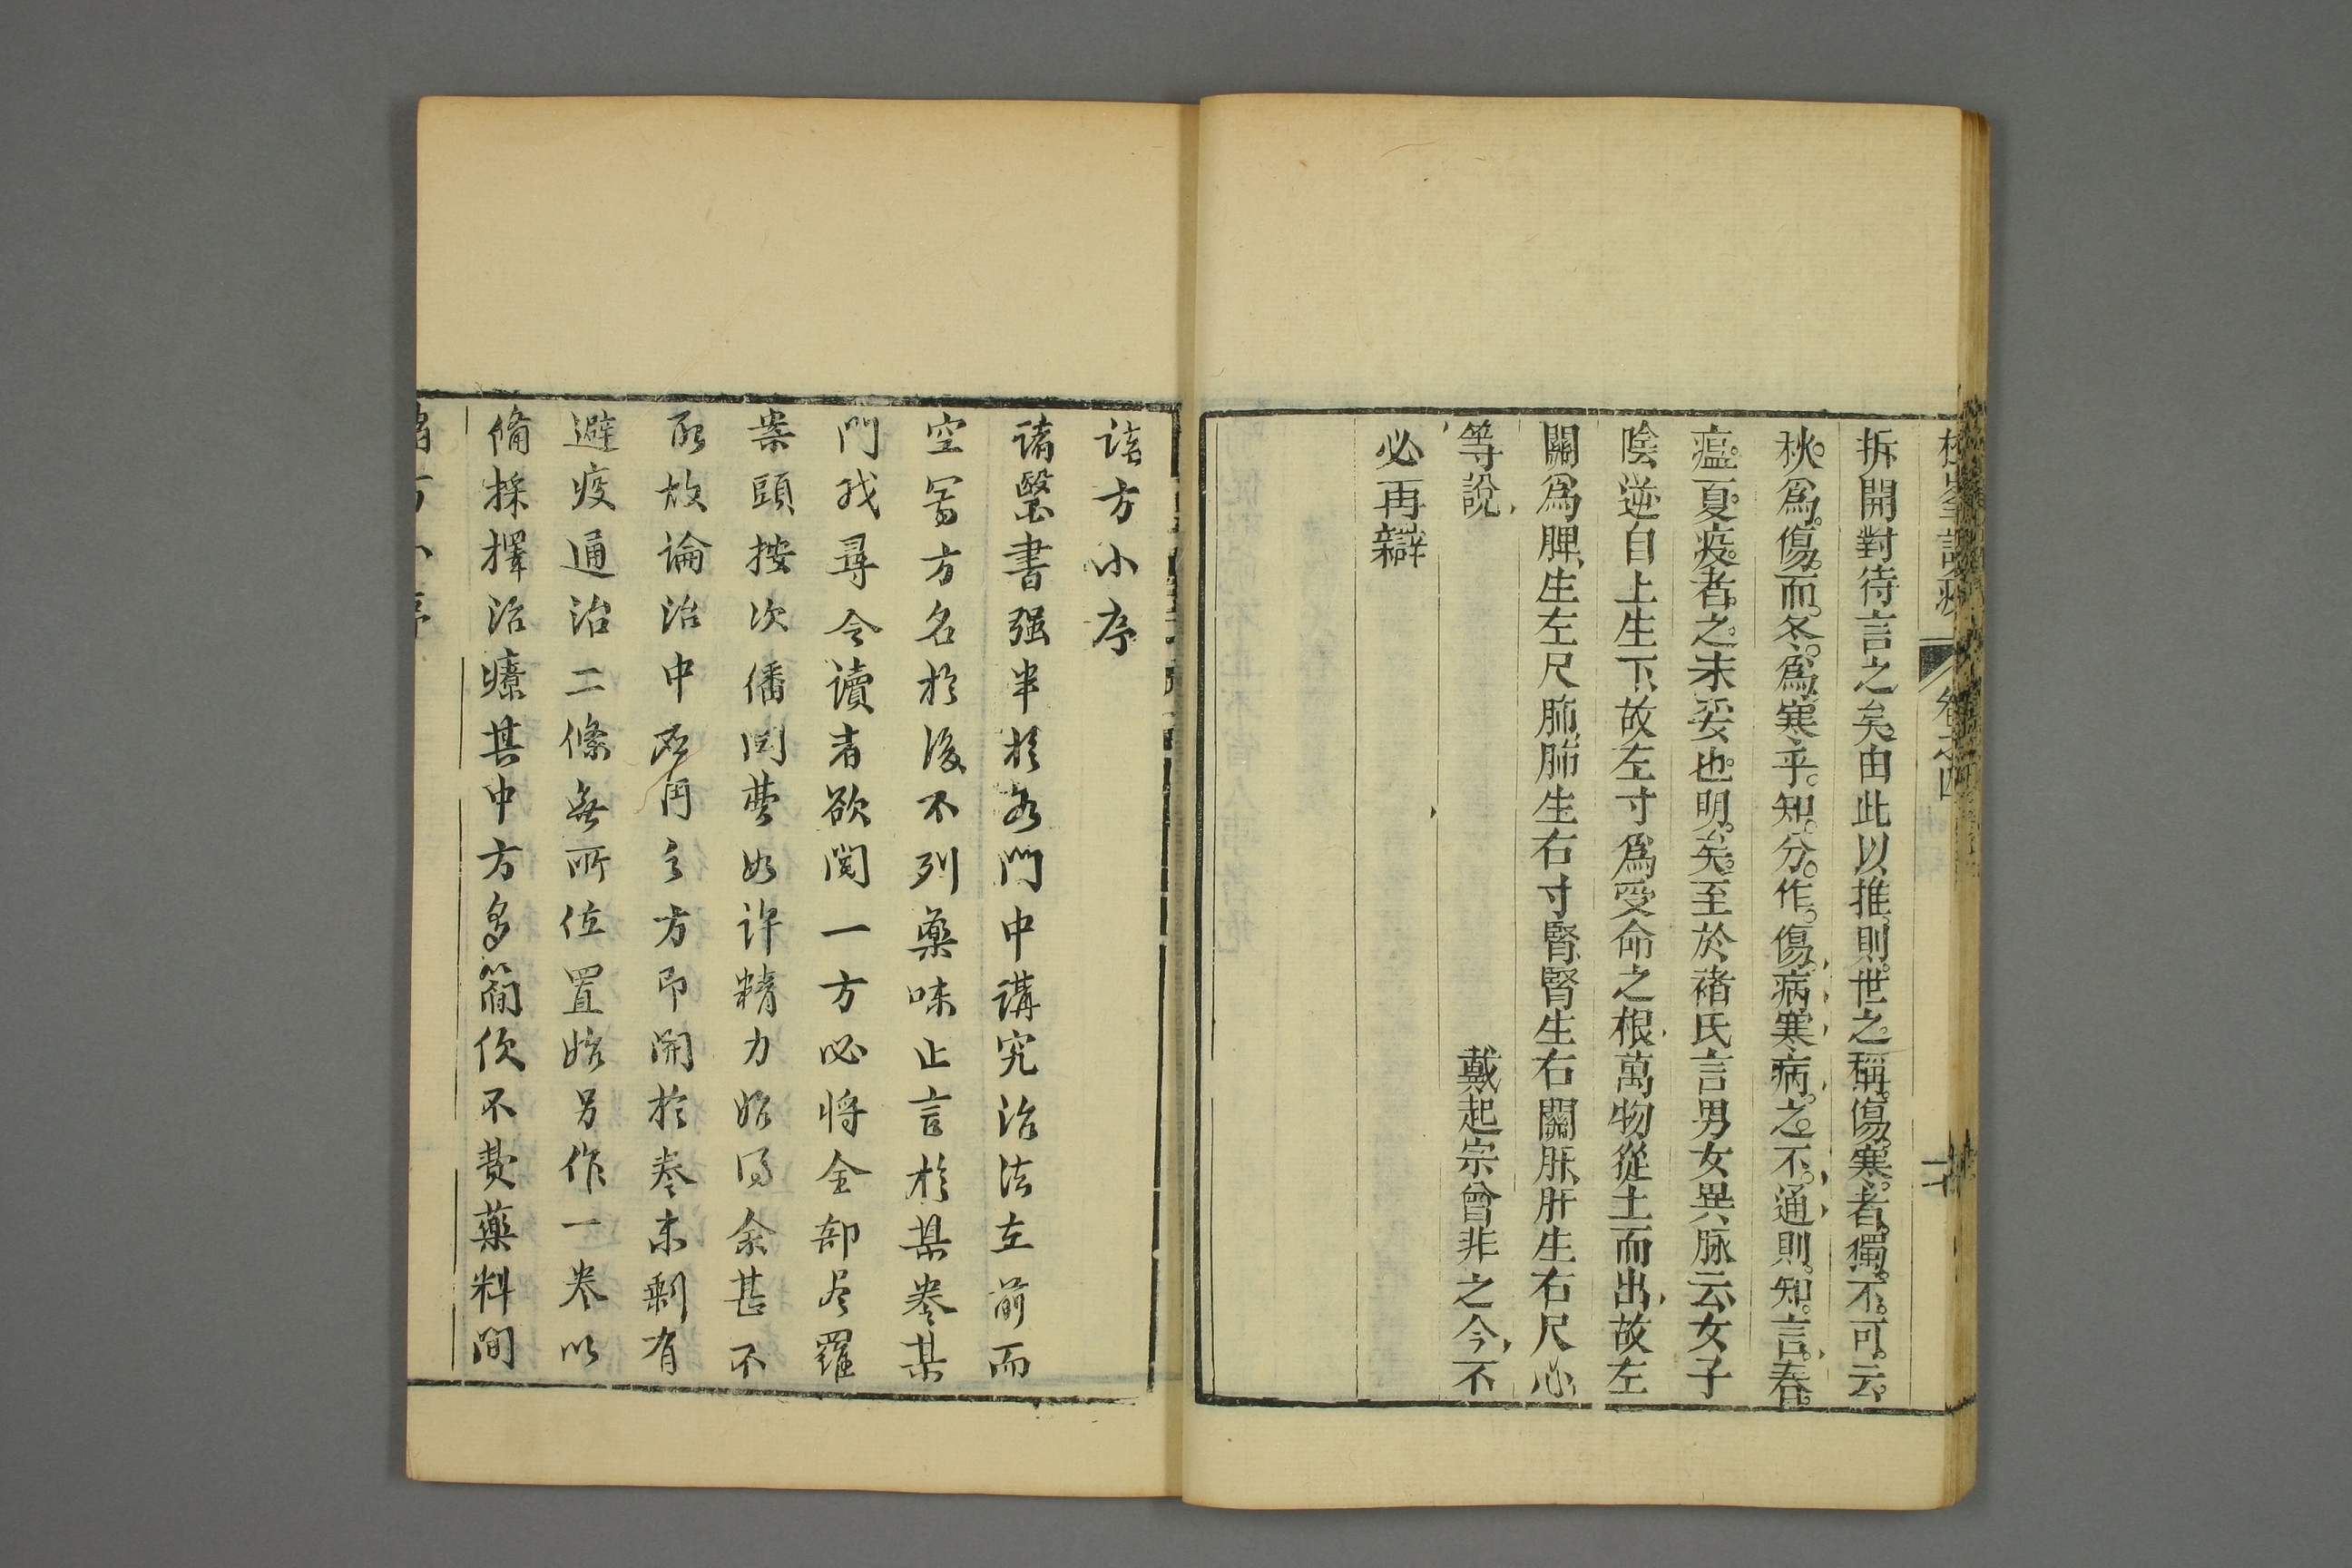 松峯說疫 卷之四
拆開對待言之矣由此以推則世之稱傷寒者獨不可云
秋爲傷而冬爲寒乎知分作傷病寒病之不通則知言春
瘟夏疫者之未妥也明矣至於褚氏言男女異脉云女子
陰逆自上生下故左寸爲受命之根萬物從土而出故左
關爲脾生左尺肺肺生右寸腎腎生右關肝肝生右尺心
等說 戴起宗曾非之今不
必再辯
諸方小序
諸醫書强半於各門中講究治法在前而
空寫方名於後不列藥味止言於某卷某
門找尋令讀者欲閱一方必將全部尽羅
案頭按次繙閱費如許精力始得余甚不
取故論治中所用之方即開於卷末剩有
避疫通治二條無所位置始另作一卷以
備採擇治瘵其中方多簡便不費藥料間
諸方小序